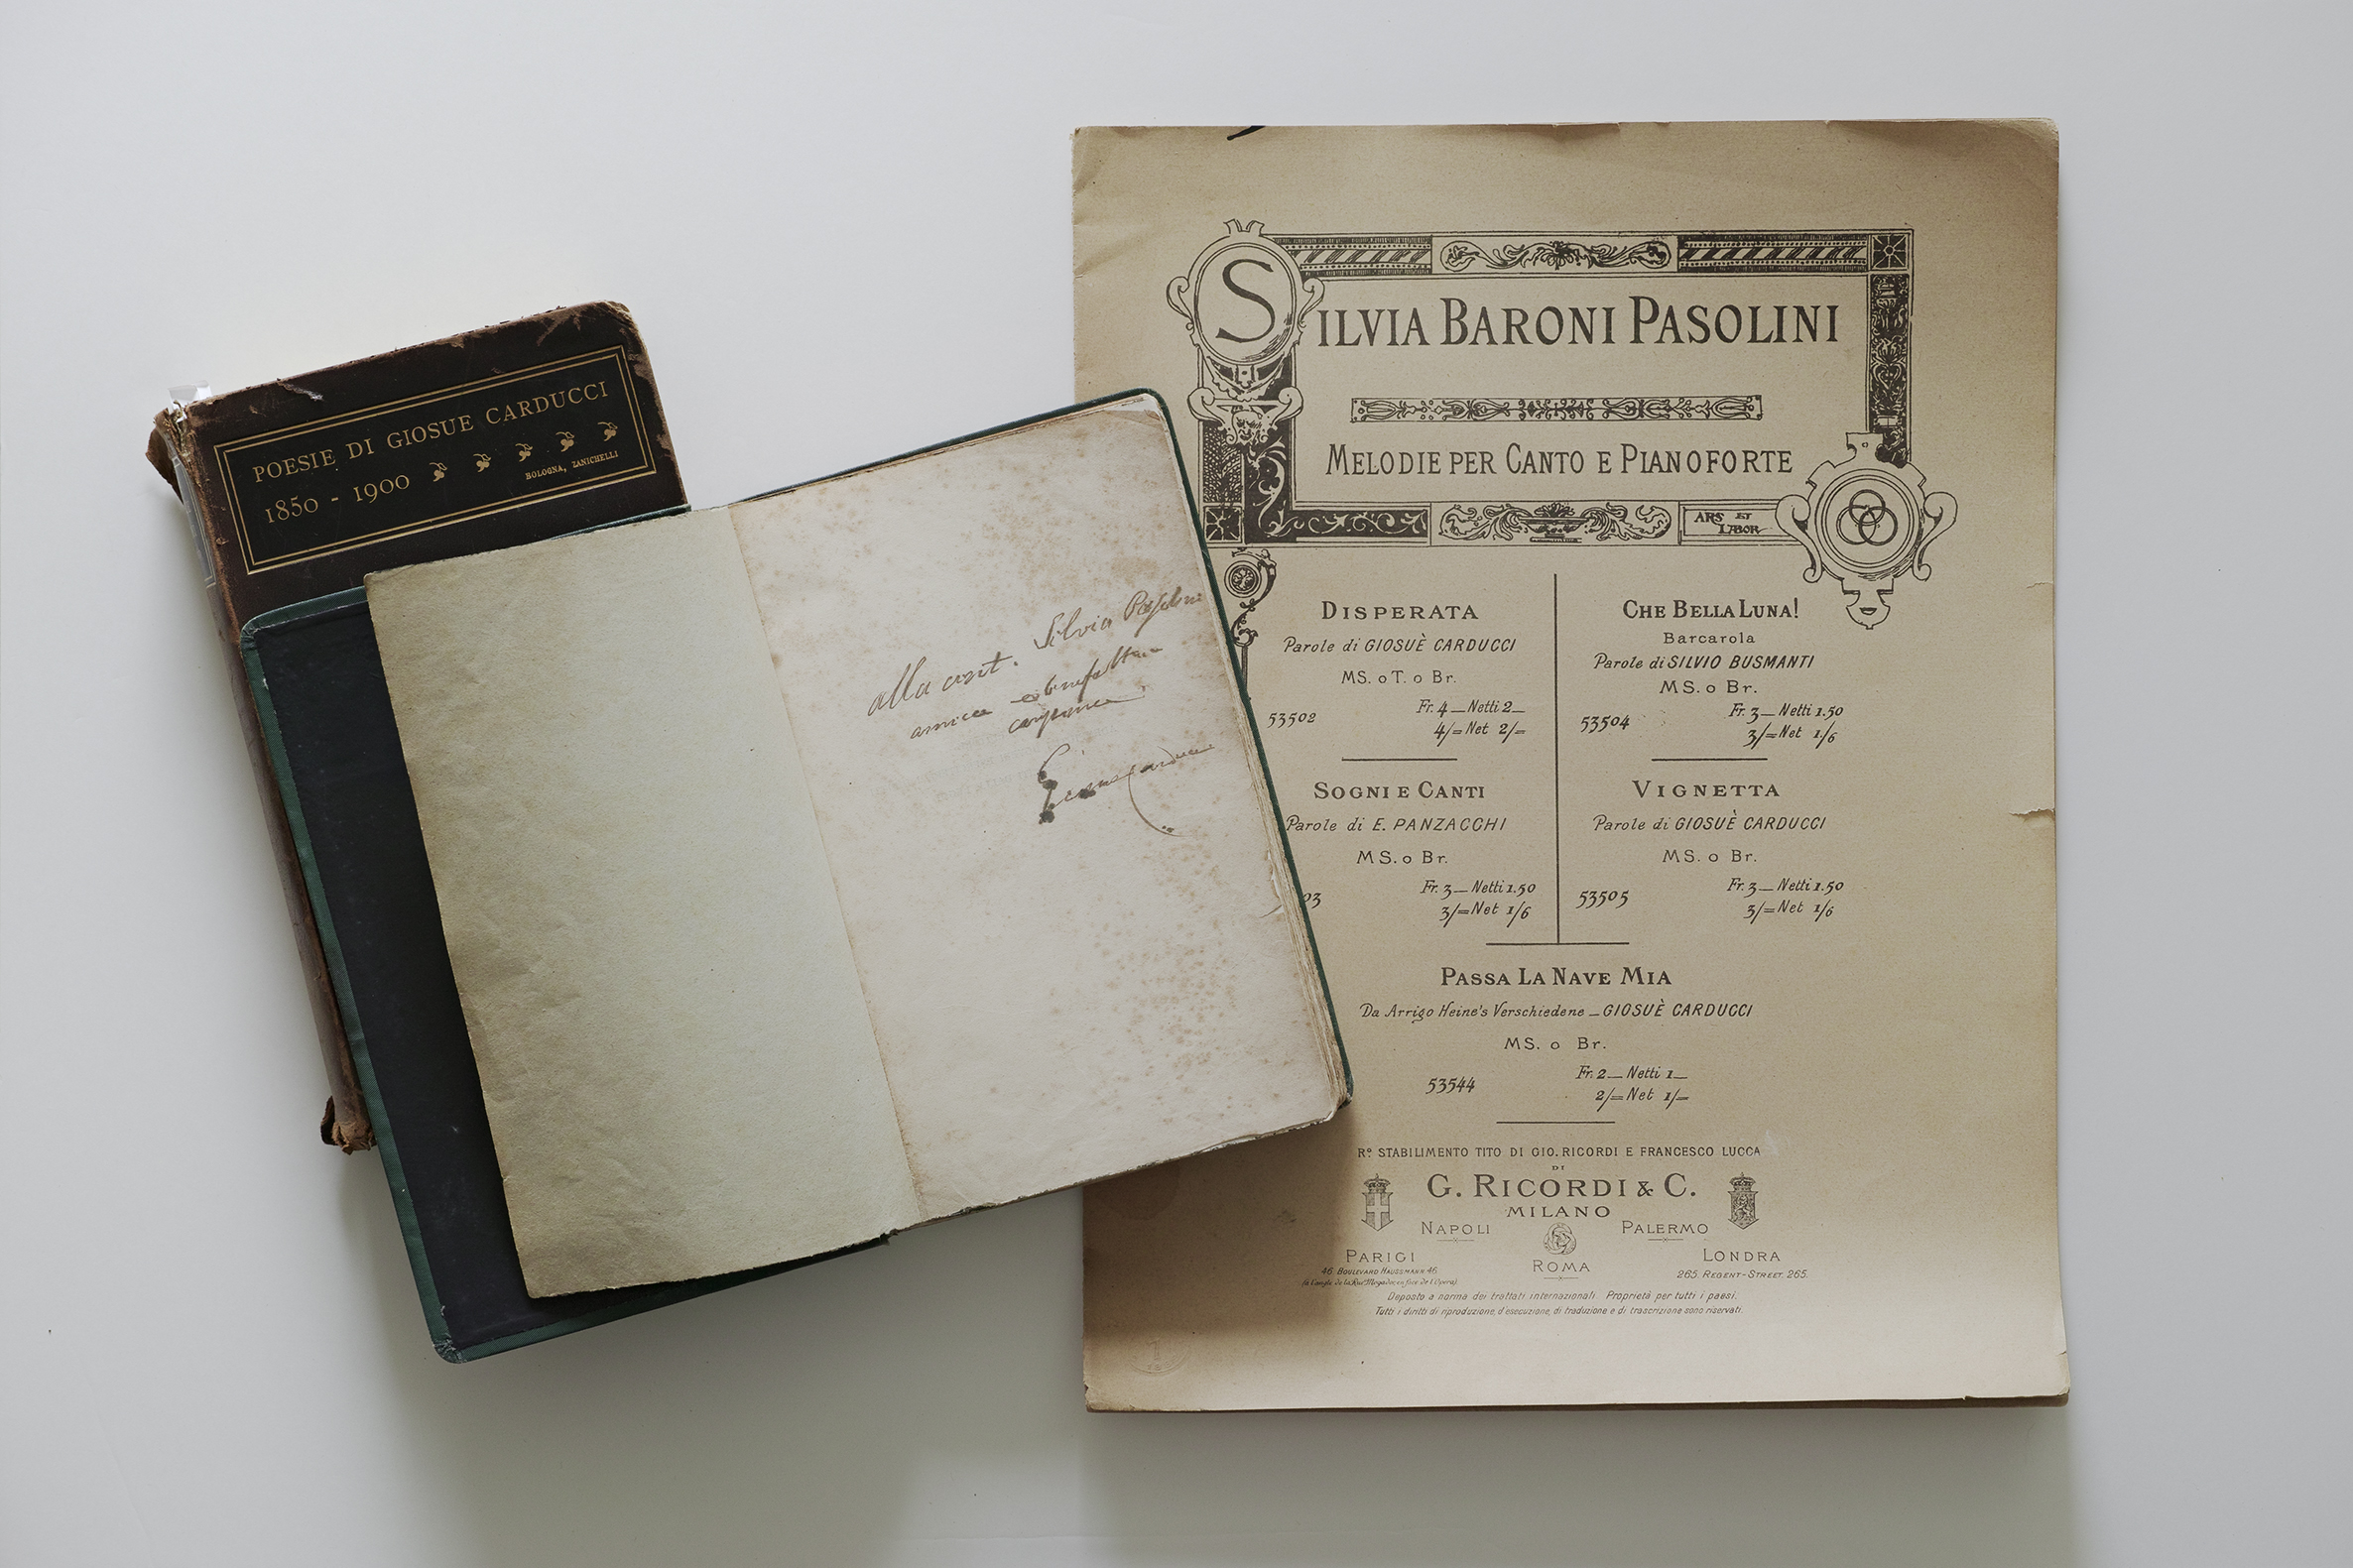 POESIE DI GIOSUE CARDUCCI
1850 - 1900
BOLOGNA, ZANICHELLI
alla cont. Silvia Pasolini
amica e benefattrice
Giosue Carducci
SILVIA BARONI PASOLINI
MELODIE PER CANTO E PIANOFORTE
ARS ET
LABOR
DISPERATA
Parole di GIOSUÈ CARDUCCI
MS. o T. o Br.
53502
Fr. 4 — Netti 2 —
4/= Net 2/=
SOGNI E CANTI
Parole di E. PANZACCHI
MS. o Br.
03
Fr. 3 — Netti 1.50
3/= Net 1/6
CHE BELLA LUNA!
Barcarola
Parole di SILVIO BUSMANTI
MS. o Br.
53504
Fr. 3 — Netti 1.50
3/= Net 1/6
VIGNETTA
Parole di GIOSUÈ CARDUCCI
MS. o Br.
53505
Fr. 3 — Netti 1.50
3/= Net 1/6
PASSA LA NAVE MIA
Da Arrigo Heine's Verschiedene — GIOSUÈ CARDUCCI
MS. o Br.
53544
Fr. 2 — Netti 1 —
2/= Net 1/—
Rº STABILIMENTO TITO DI GIO. RICORDI E FRANCESCO LUCCA
DI
G. RICORDI & C.
MILANO
NAPOLI
PALERMO
PARIGI
46 BOULEVARD HAUSSMANN 46
(à l'angle de la Rue Mogador, en face de l'Opéra)
ROMA
LONDRA
265. REGENT-STREET. 265.
Deposto a norma dei trattati internazionali. Proprietà per tutti i paesi.
Tutti i diritti di riproduzione, d'esecuzione, di traduzione e di trascrizione sono riservati.